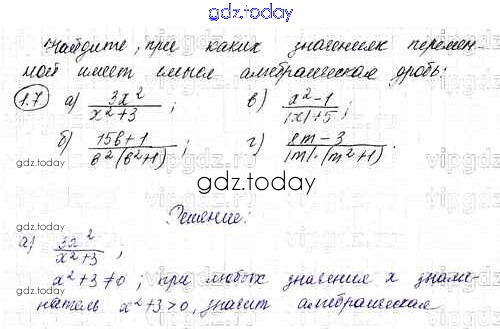 gdz.today
Найдите, при каких значениях перемен-
ной имеет смысл алгебраическая дробь:
1.7 а) 3x²/(x²+3); в) (x²-1)/(|x|+5);
б) (15b+1)/(b²(b²+1)); г) (8m-3)/(|m|·(m²+1)).
gdz.today
Решение:
а) 3x²/(x²+3);
x²+3≠0; при любых значения x знаме-
натель x²+3>0, значит алгебраическая
gdz.today